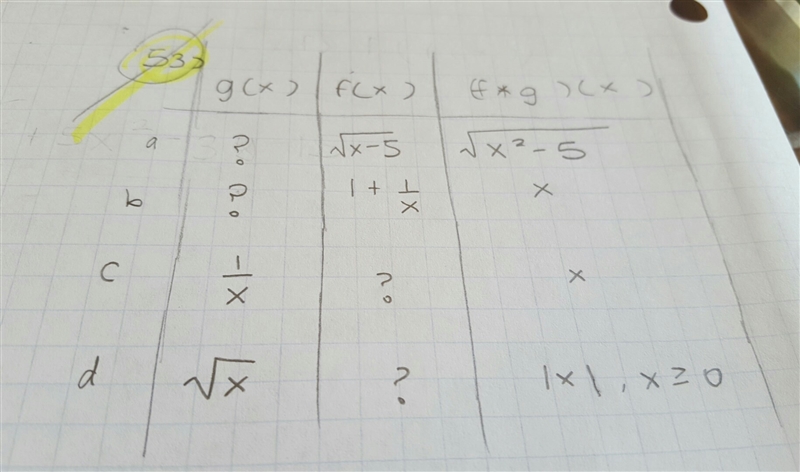 53)
g(x) f(x) (f*g)(x)
a ? √x-5 √x²-5
b ? 1 + 1/x x
c 1/x ? x
d √x ? |x|, x ≥ 0